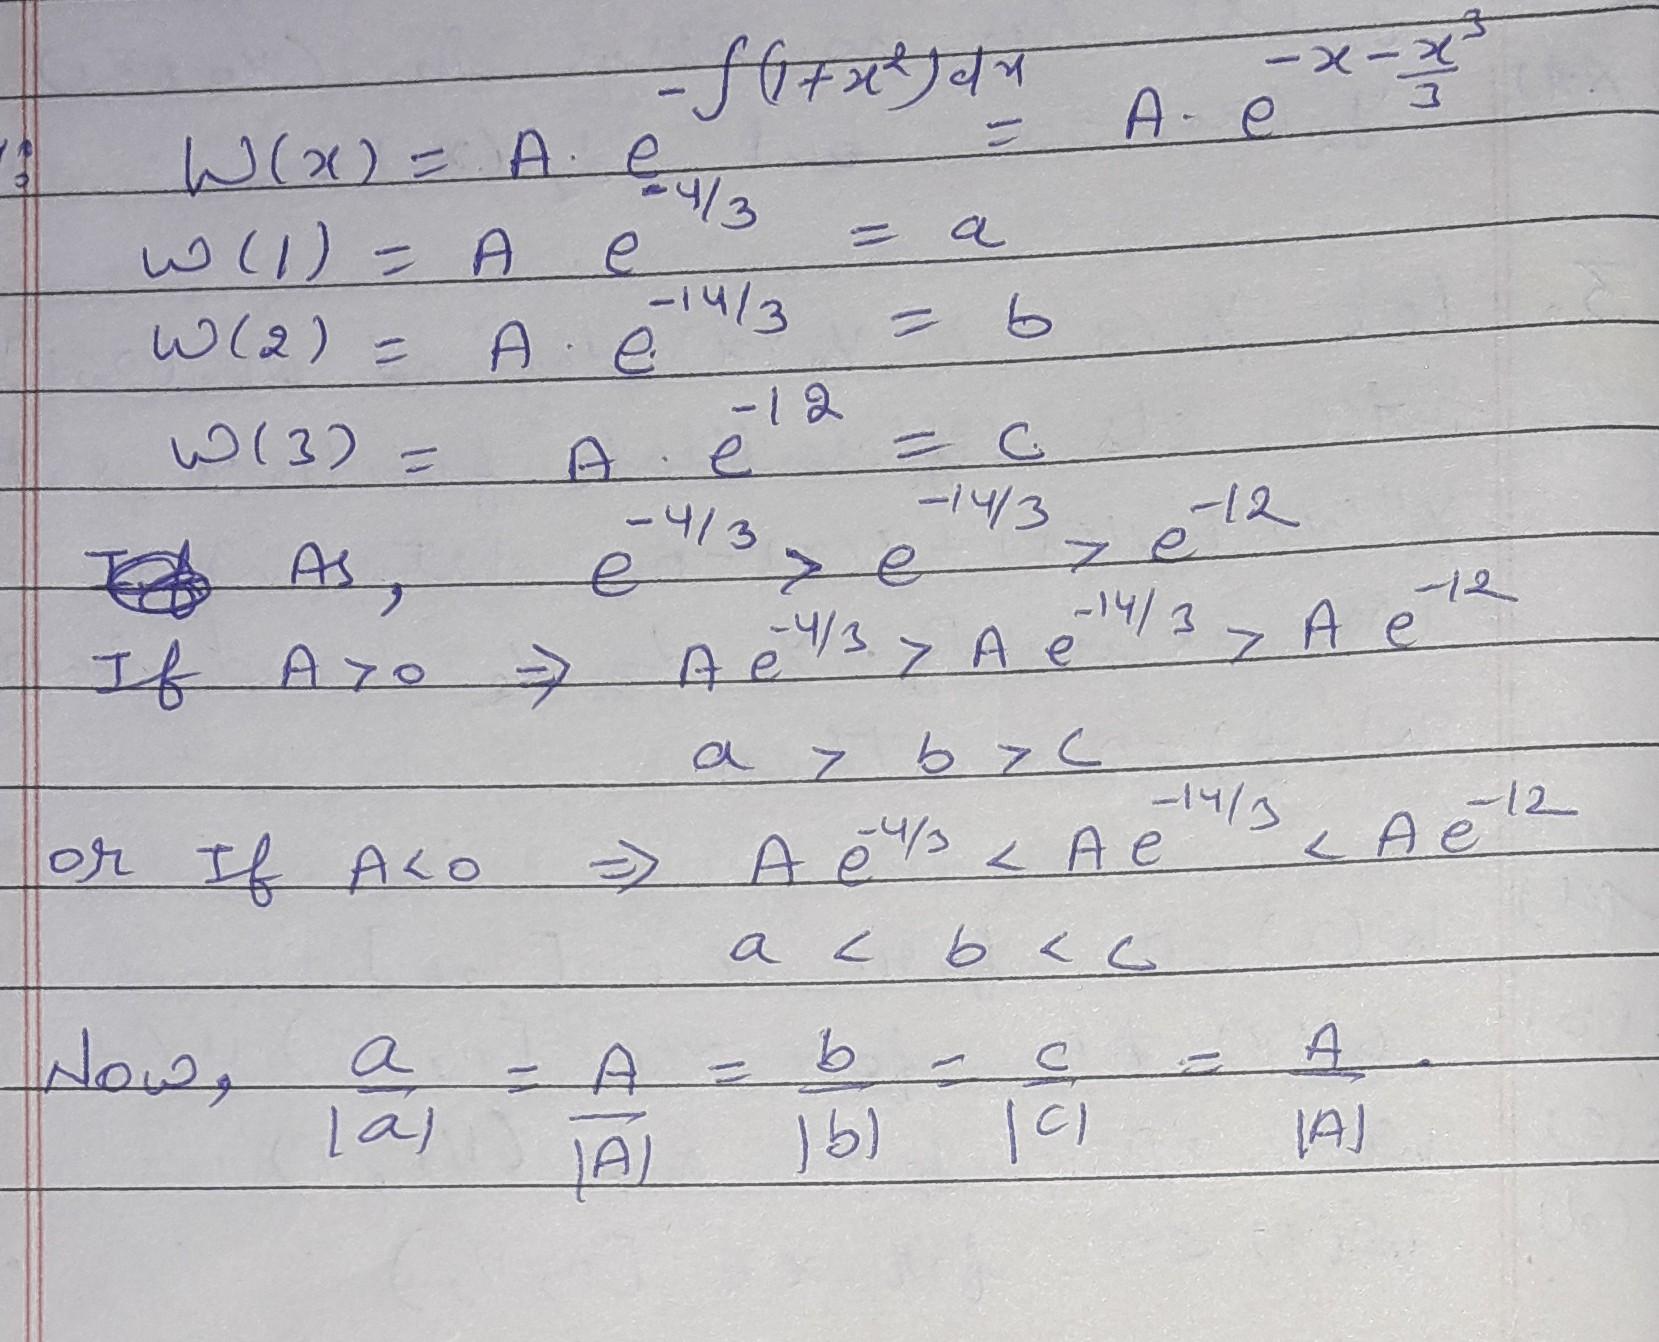 W(x) = A. e^{-∫(1+x²)dx} = A. e^{-x-x³/3}
W(1) = A e^{-4/3} = a
W(2) = A. e^{-14/3} = b
W(3) = A. e^{-12} = c
As, e^{-4/3} > e^{-14/3} > e^{-12}
If A>0 ⇒ A e^{-4/3} > A e^{-14/3} > A e^{-12}
a > b > c
or If A<0 ⇒ A e^{-4/3} < A e^{-14/3} < A e^{-12}
a < b < c
Now, a/|a| = A/|A| = b/|b| = c/|c| = A/|A|.